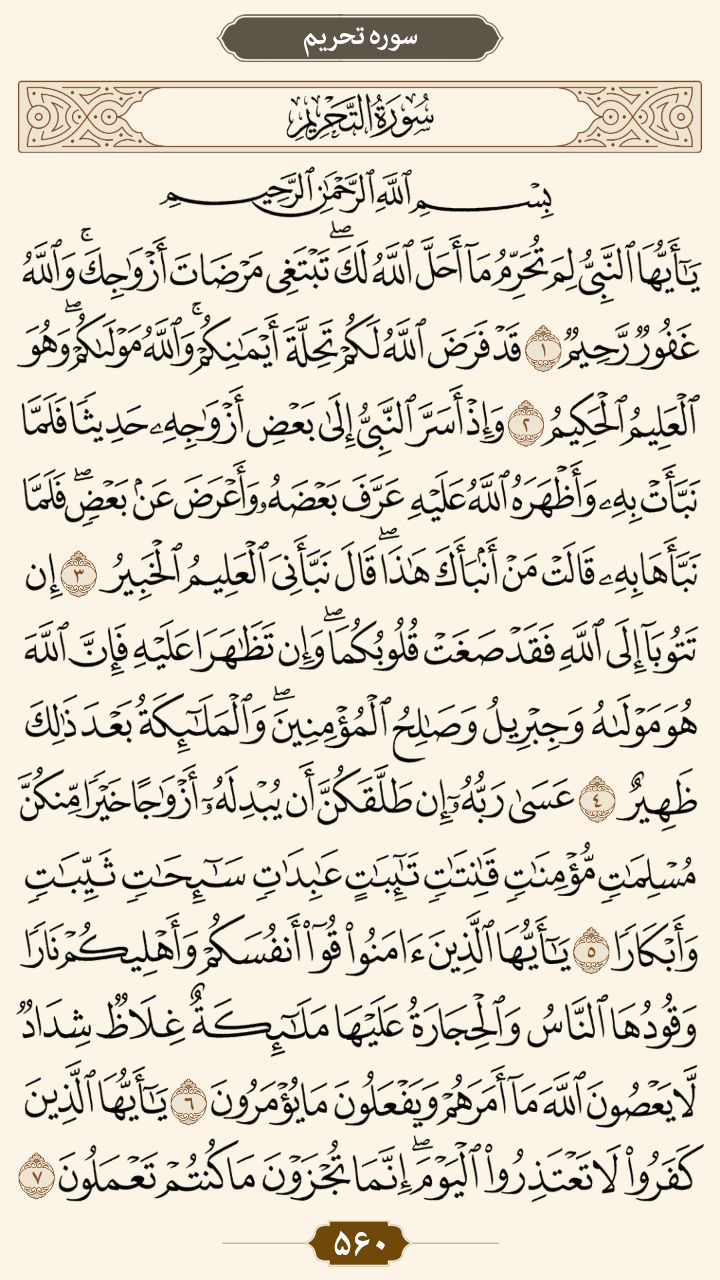 سوره تحریم
سُورَةُ التَّحْرِيمِ
بِسْمِ ٱللَّهِ ٱلرَّحْمَٰنِ ٱلرَّحِيمِ
يَٰٓأَيُّهَا ٱلنَّبِيُّ لِمَ تُحَرِّمُ مَآ أَحَلَّ ٱللَّهُ لَكَۖ تَبْتَغِى مَرْضَاتَ أَزْوَٰجِكَۚ وَٱللَّهُ
غَفُورٌ رَّحِيمٌ ١ قَدْ فَرَضَ ٱللَّهُ لَكُمْ تَحِلَّةَ أَيْمَٰنِكُمْۚ وَٱللَّهُ مَوْلَىٰكُمْۖ وَهُوَ
ٱلْعَلِيمُ ٱلْحَكِيمُ ٢ وَإِذْ أَسَرَّ ٱلنَّبِيُّ إِلَىٰ بَعْضِ أَزْوَٰجِهِۦ حَدِيثًا فَلَمَّا
نَبَّأَتْ بِهِۦ وَأَظْهَرَهُ ٱللَّهُ عَلَيْهِ عَرَّفَ بَعْضَهُۥ وَأَعْرَضَ عَنۢ بَعْضٍۖ فَلَمَّا
نَبَّأَهَا بِهِۦ قَالَتْ مَنْ أَنۢبَأَكَ هَٰذَاۖ قَالَ نَبَّأَنِىَ ٱلْعَلِيمُ ٱلْخَبِيرُ ٣ إِن
تَتُوبَآ إِلَى ٱللَّهِ فَقَدْ صَغَتْ قُلُوبُكُمَاۖ وَإِن تَظَٰهَرَا عَلَيْهِ فَإِنَّ ٱللَّهَ
هُوَ مَوْلَىٰهُ وَجِبْرِيلُ وَصَٰلِحُ ٱلْمُؤْمِنِينَۖ وَٱلْمَلَٰٓئِكَةُ بَعْدَ ذَٰلِكَ
ظَهِيرٌ ٤ عَسَىٰ رَبُّهُۥٓ إِن طَلَّقَكُنَّ أَن يُبْدِلَهُۥٓ أَزْوَٰجًا خَيْرًا مِّنكُنَّ
مُسْلِمَٰتٍ مُّؤْمِنَٰتٍ قَٰنِتَٰتٍ تَٰٓئِبَٰتٍ عَٰبِدَٰتٍ سَٰٓئِحَٰتٍ ثَيِّبَٰتٍ
وَأَبْكَارًا ٥ يَٰٓأَيُّهَا ٱلَّذِينَ ءَامَنُوا۟ قُوٓا۟ أَنفُسَكُمْ وَأَهْلِيكُمْ نَارًا
وَقُودُهَا ٱلنَّاسُ وَٱلْحِجَارَةُ عَلَيْهَا مَلَٰٓئِكَةٌ غِلَاظٌ شِدَادٌ
لَّا يَعْصُونَ ٱللَّهَ مَآ أَمَرَهُمْ وَيَفْعَلُونَ مَا يُؤْمَرُونَ ٦ يَٰٓأَيُّهَا ٱلَّذِينَ
كَفَرُوا۟ لَا تَعْتَذِرُوا۟ ٱلْيَوْمَۖ إِنَّمَا تُجْزَوْنَ مَا كُنتُمْ تَعْمَلُونَ ٧
۵۶۰